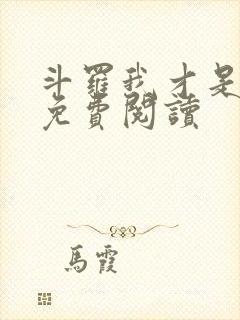 斗羅我才是
免費閱讀
馬霞